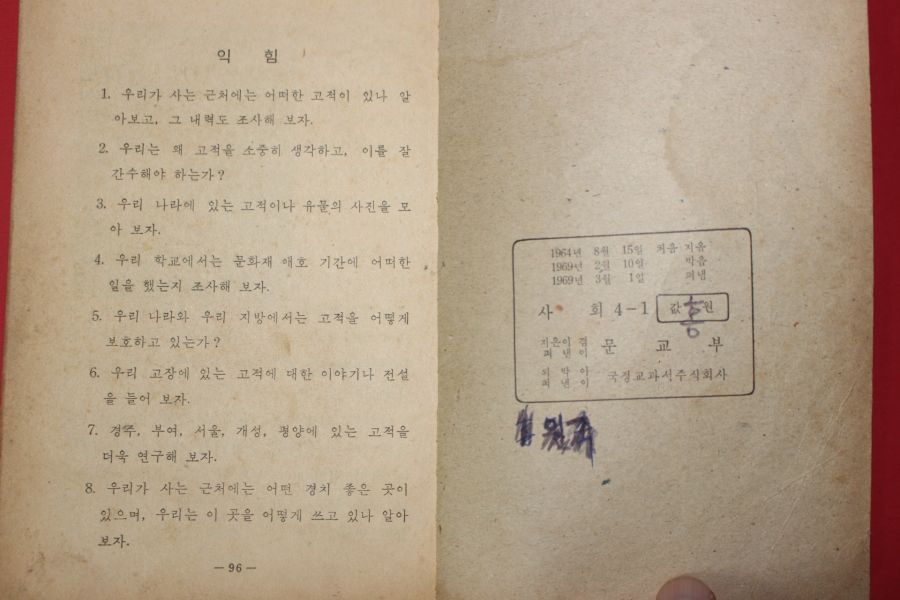 익 힘
1. 우리가 사는 근처에는 어떠한 고적이 있나 알
아보고, 그 내력도 조사해 보자.
2. 우리는 왜 고적을 소중히 생각하고, 이를 잘
간수해야 하는가?
3. 우리 나라에 있는 고적이나 유물의 사진을 모
아 보자.
4. 우리 학교에서는 문화재 애호 기간에 어떠한
일을 했는지 조사해 보자.
5. 우리 나라와 우리 지방에서는 고적을 어떻게
보호하고 있는가?
6. 우리 고장에 있는 고적에 대한 이야기나 전설
을 들어 보자.
7. 경주, 부여, 서울, 개성, 평양에 있는 고적을
더욱 연구해 보자.
8. 우리가 사는 근처에는 어떤 경치 좋은 곳이
있으며, 우리는 이 곳을 어떻게 쓰고 있나 알아
보자.
— 96 —
1964년 8월 15일 처음 지음
1969년 2월 10일 박음
1969년 3월 1일 펴냄
사 회 4-1 값 원
지은이 겸
펴낸이 문 교 부
박아
펴낸이 국정교과서주식회사